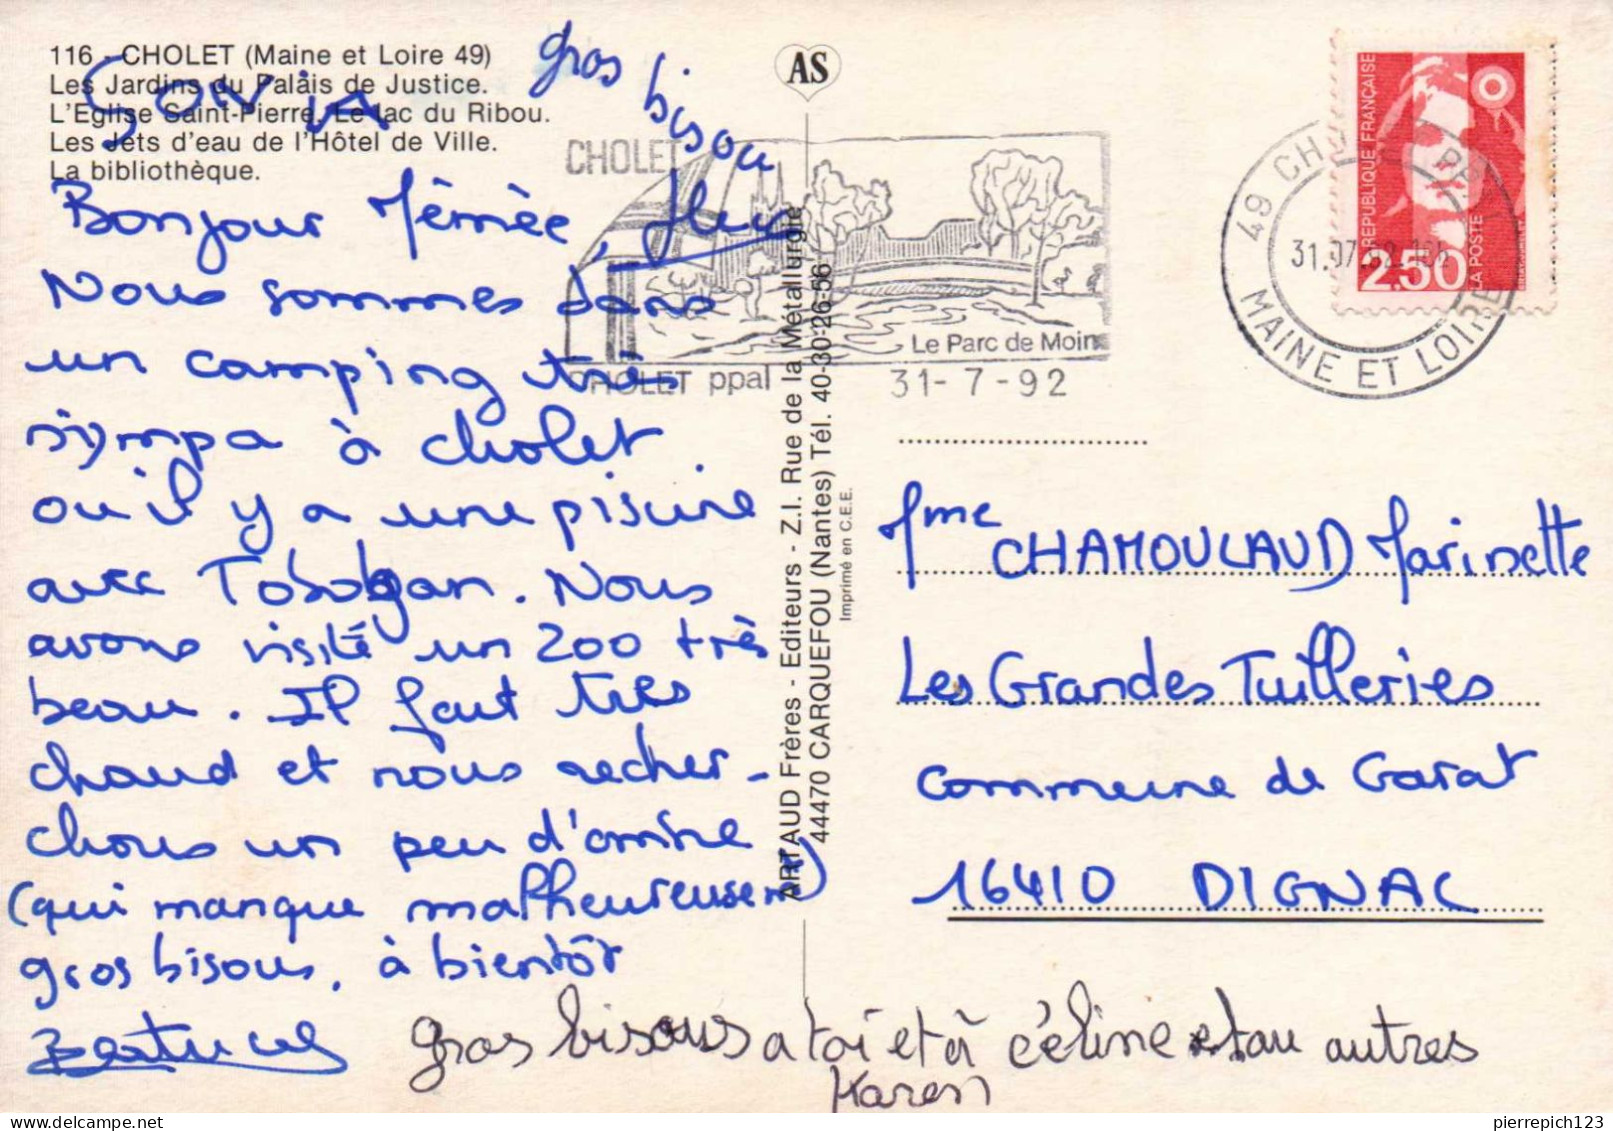 116 - CHOLET (Maine et Loire 49)
Les Jardins du Palais de Justice.
L'Eglise Saint-Pierre. Le lac du Ribou.
Les Jets d'eau de l'Hôtel de Ville.
La bibliothèque.
SONIA
gros bisou
Bonjour Mémée,
Nous sommes dans
un camping très
sympa à cholet
ou il y a une piscine
avec Tobogan. Nous
avons visité un zoo très
beau. Il fait très
chaud et nous recher-
chons un peu d'ombre
(qui manque malheureusement)
gros bisous, à bientôt
gros bisous a toi et à céline et au autres
Karen
AS
ARTAUD Frères - Editeurs - Z.I. Rue de la Métallurgie
44470 CARQUEFOU (Nantes) Tél. 40-30-26-56
Imprimé en C.E.E.
CHOLET
Le Parc de Moine
CHOLET ppal 31-7-92
49 CHOLET PPAL
31.07.92 16h
MAINE ET LOIRE
REPUBLIQUE FRANÇAISE
2.50
LA POSTE
Mme CHAMOULAUD Marinette
Les Grandes Tuilleries
commune de Garat
16410 DIGNAC
pierrepich123